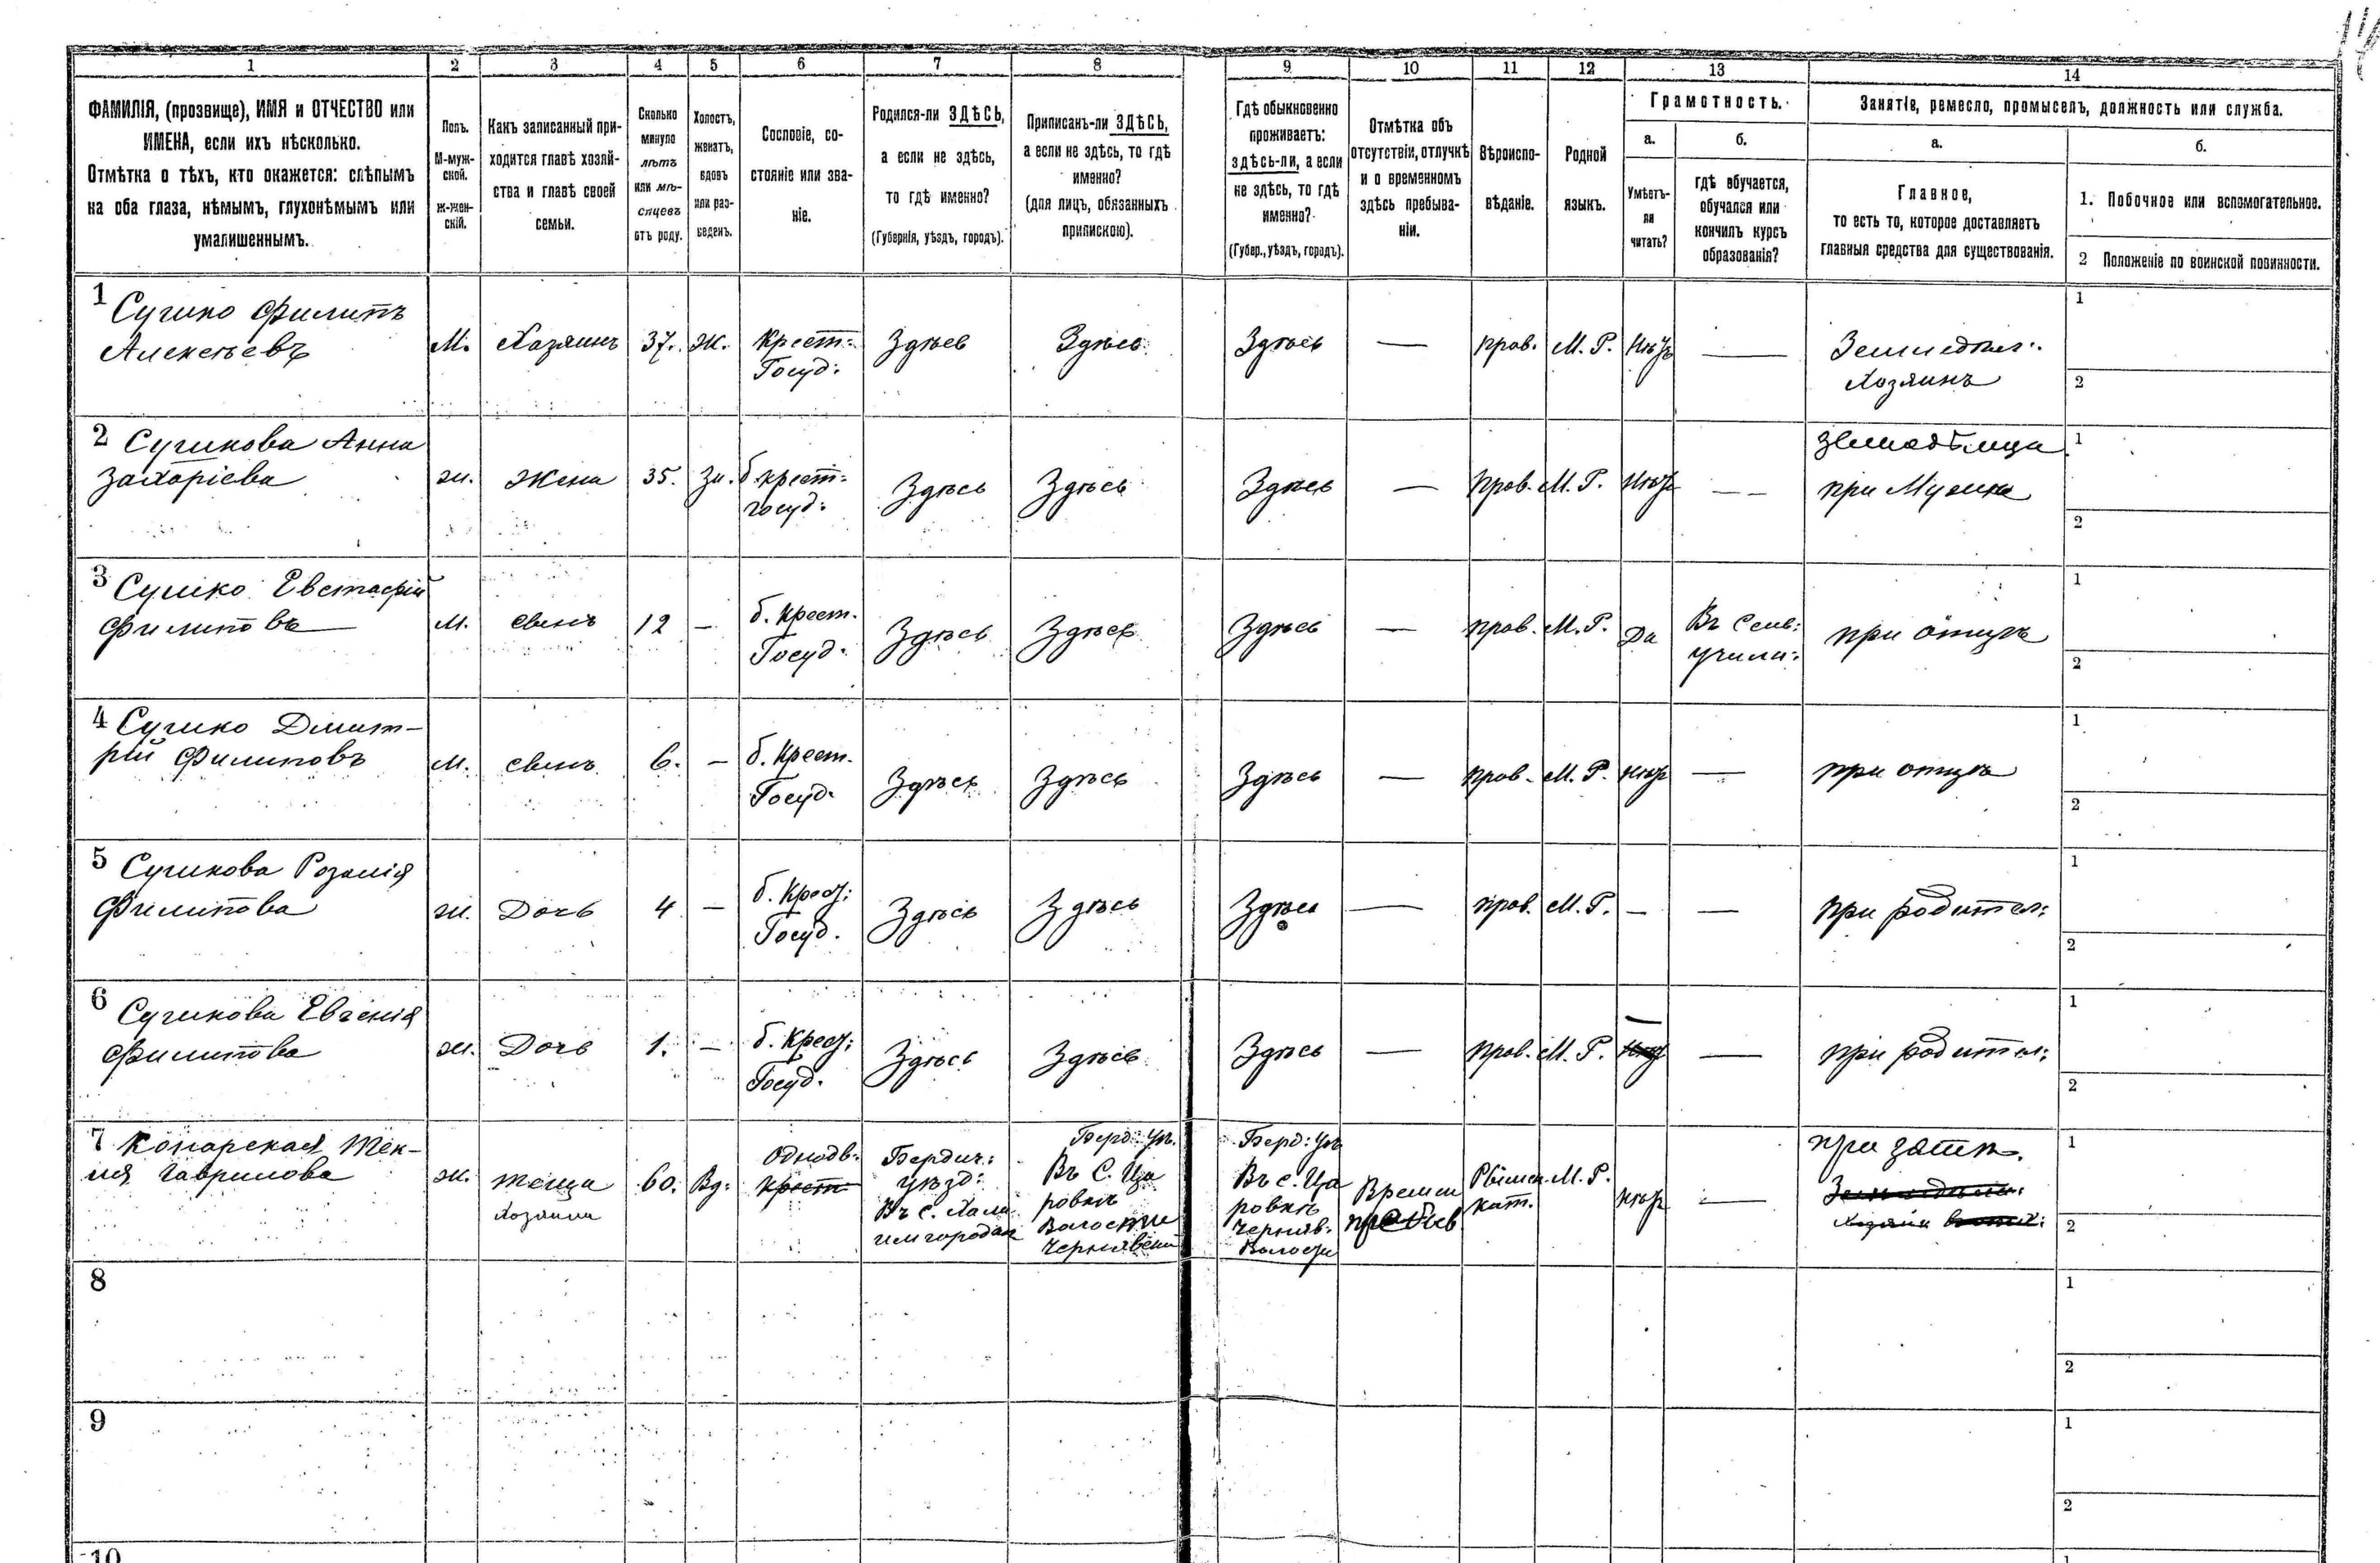 1 2 3 4 5 6 7 8 9 10 11 12 13 14
ФАМИЛІЯ, (прозвище), ИМЯ и ОТЧЕСТВО или
ИМЕНА, если ихъ нѣсколько.
Отмѣтка о тѣхъ, кто окажется: слѣпымъ
на оба глаза, нѣмымъ, глухонѣмымъ или
умалишеннымъ.
Полъ.
М-муж-
ской.
Ж-жен-
скій.
Какъ записанный при-
ходится главѣ хозяй-
ства и главѣ своей
семьи.
Сколько
минуло
лѣтъ
или мѣ-
сяцевъ
отъ роду.
Холостъ,
женатъ,
вдовъ
или раз-
веденъ.
Сословіе, со-
стояніе или зва-
ніе.
Родился-ли ЗДѢСЬ,
а если не здѣсь,
то гдѣ именно?
(Губернія, уѣздъ, городъ).
Приписанъ-ли ЗДѢСЬ,
а если не здѣсь, то гдѣ
именно?
(для лицъ, обязанныхъ
припискою).
Гдѣ обыкновенно
проживаетъ:
здѣсь-ли, а если
не здѣсь, то гдѣ
именно?
(Губер., уѣздъ, городъ).
Отмѣтка объ
отсутствіи, отлучкѣ
и о временномъ
здѣсь пребыва-
ніи.
Вѣроиспо-
вѣданіе.
Родной
языкъ.
Грамотность.
а.
Умѣетъ-
ли
читать?
б.
гдѣ обучается,
обучался или
кончилъ курсъ
образованія?
Занятіе, ремесло, промыселъ, должность или служба.
а.
Главное,
то есть то, которое доставляетъ
главныя средства для существованія.
б.
1. Побочное или вспомогательное.
2 Положеніе по воинской повинности.
1 Сушко Филипъ
Алексѣевъ
М. Хозяинъ 37. Ж. Крест:
Госуд:
Здѣсь Здѣсь Здѣсь — прав. М. Р. —
Земледѣл:
Хозяинъ
1
2
2 Сушкова Анна
Захаріева
ж. Жена 35. Зм. б. крест:
госуд:
Здѣсь Здѣсь Здѣсь — прав. М. Р. — —
при
1
2
3 Сушко Евстафій
Филиповъ
М. сынъ 12 — б. Крест.
Госуд.
Здѣсь Здѣсь Здѣсь — прав. М. Р. Да
Въ Сельс:
учили:
при отцѣ
1
2
4 Сушко Дмит-
рій Филиповъ
М. сынъ 6. — б. Крест.
Госуд.
Здѣсь Здѣсь Здѣсь — прав. М. Р. —
при отцѣ
1
2
5 Сушкова Розалія
Филипова
ж. Дочь 4 — б. Крест:
Госуд.
Здѣсь Здѣсь Здѣсь — прав. М. Р. — —
при родител:
1
2
6 Сушкова Евгенія
Филипова
ж. Дочь 1. — б. Крест:
Госуд.
Здѣсь Здѣсь Здѣсь — прав. М. Р. — —
при родител:
1
2
7 Конарская Тек-
ля Гаврилова
ж. Теща
Хозяина
60. Вд.
Однодв:
крест
Бердич:
уѣзд:
Берд: Уѣ.
Въ С. Ца
ровкѣ
Волости
Берд: Уѣ
Въ с. Ца
ровкѣ
Черняв:
Волости
Времен
Римск
кат.
М. Р. —
при зятѣ.
1
2
8
1
2
9
1
2
10
1